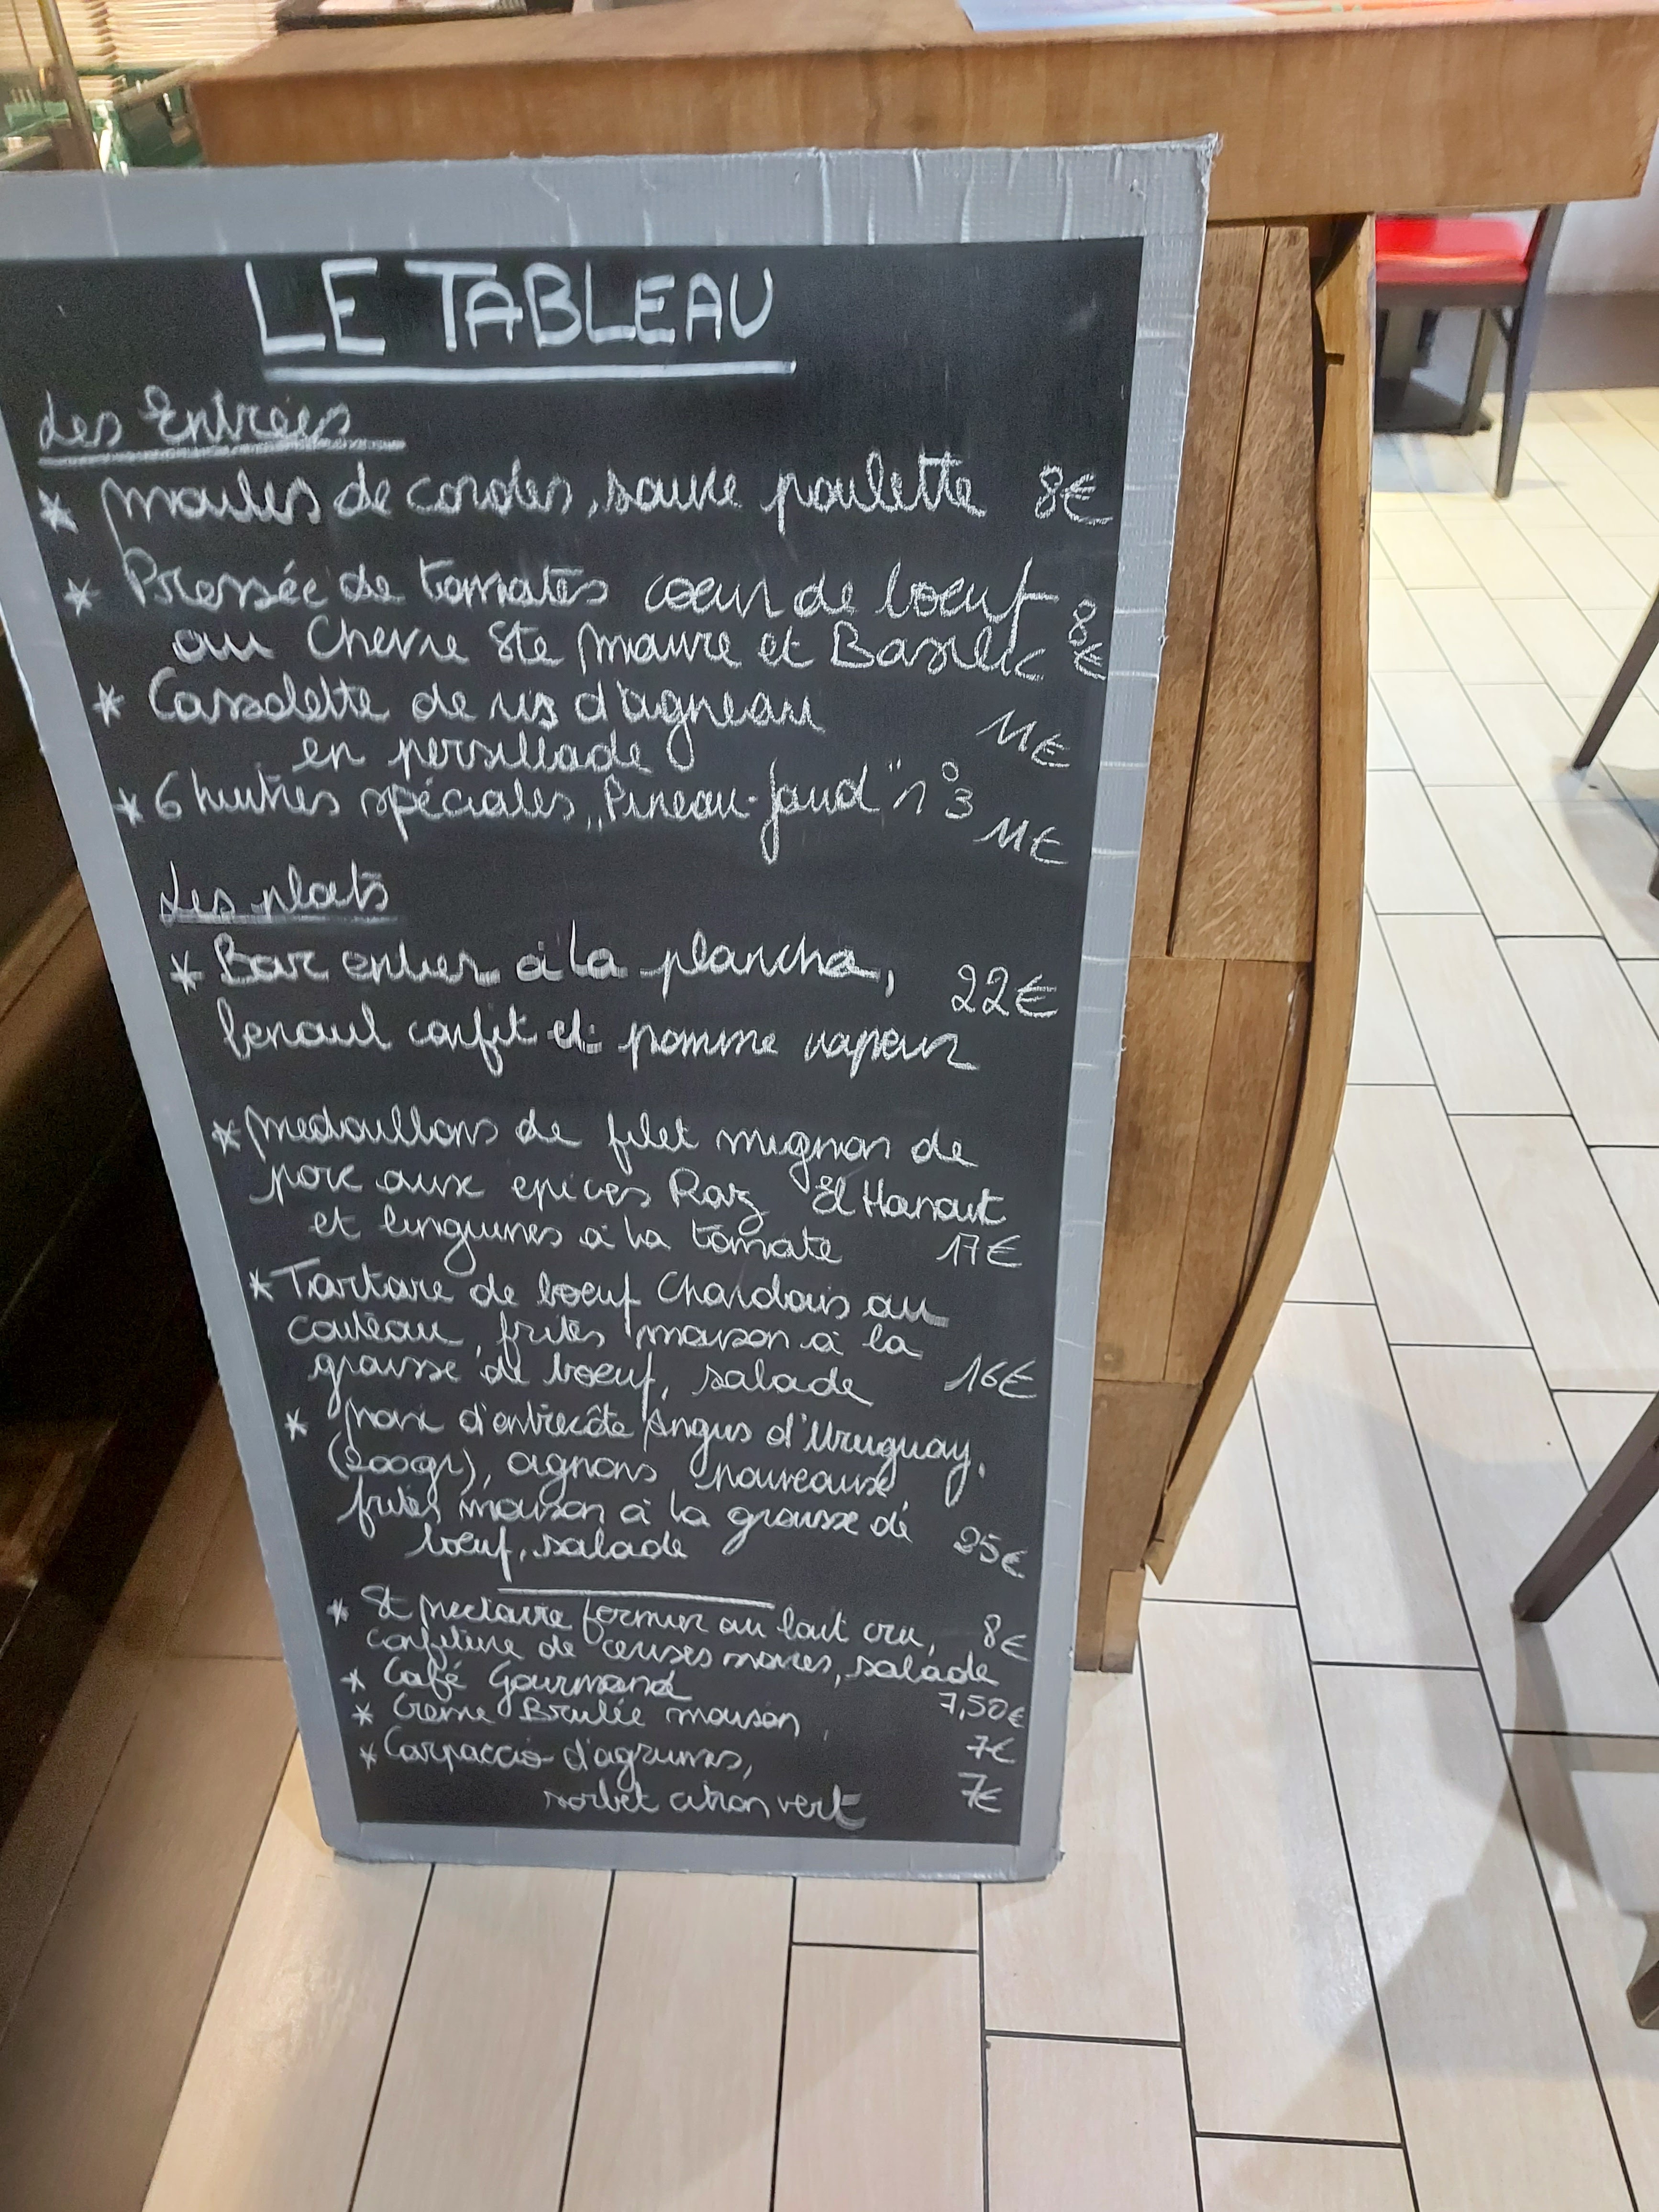 LE TABLEAU
Les Entrées
* Moules de cordes, sauce poulette 8€
* Pressée de tomates coeur de boeuf
au Chevre Ste Maure et Basilic 8€
* Cassolette de ris d'agneau
en persillade 11€
* 6 huitres spéciales "Pineau-Jaud" n°3 11€
Les plats
* Bar entier à la plancha, 22€
fenouil confit et pomme vapeur
* Medaillons de filet mignon de
porc aux epices Raz El Hanout
et linguines à la tomate 17€
* Tartare de boeuf Charolais au
couteau, frites maison à la
graisse de boeuf, salade 16€
* Pavé d'entrecôte Angus d'Uruguay,
(200gr), oignons nouveaux
frites maison à la graisse de
boeuf, salade 25€
* St Nectaire fermier au lait cru, 8€
confiture de cerises noires, salade
* Café Gourmand 7,50€
* Creme Brulée maison 7€
* Carpaccio d'agrumes,
sorbet citron vert 7€